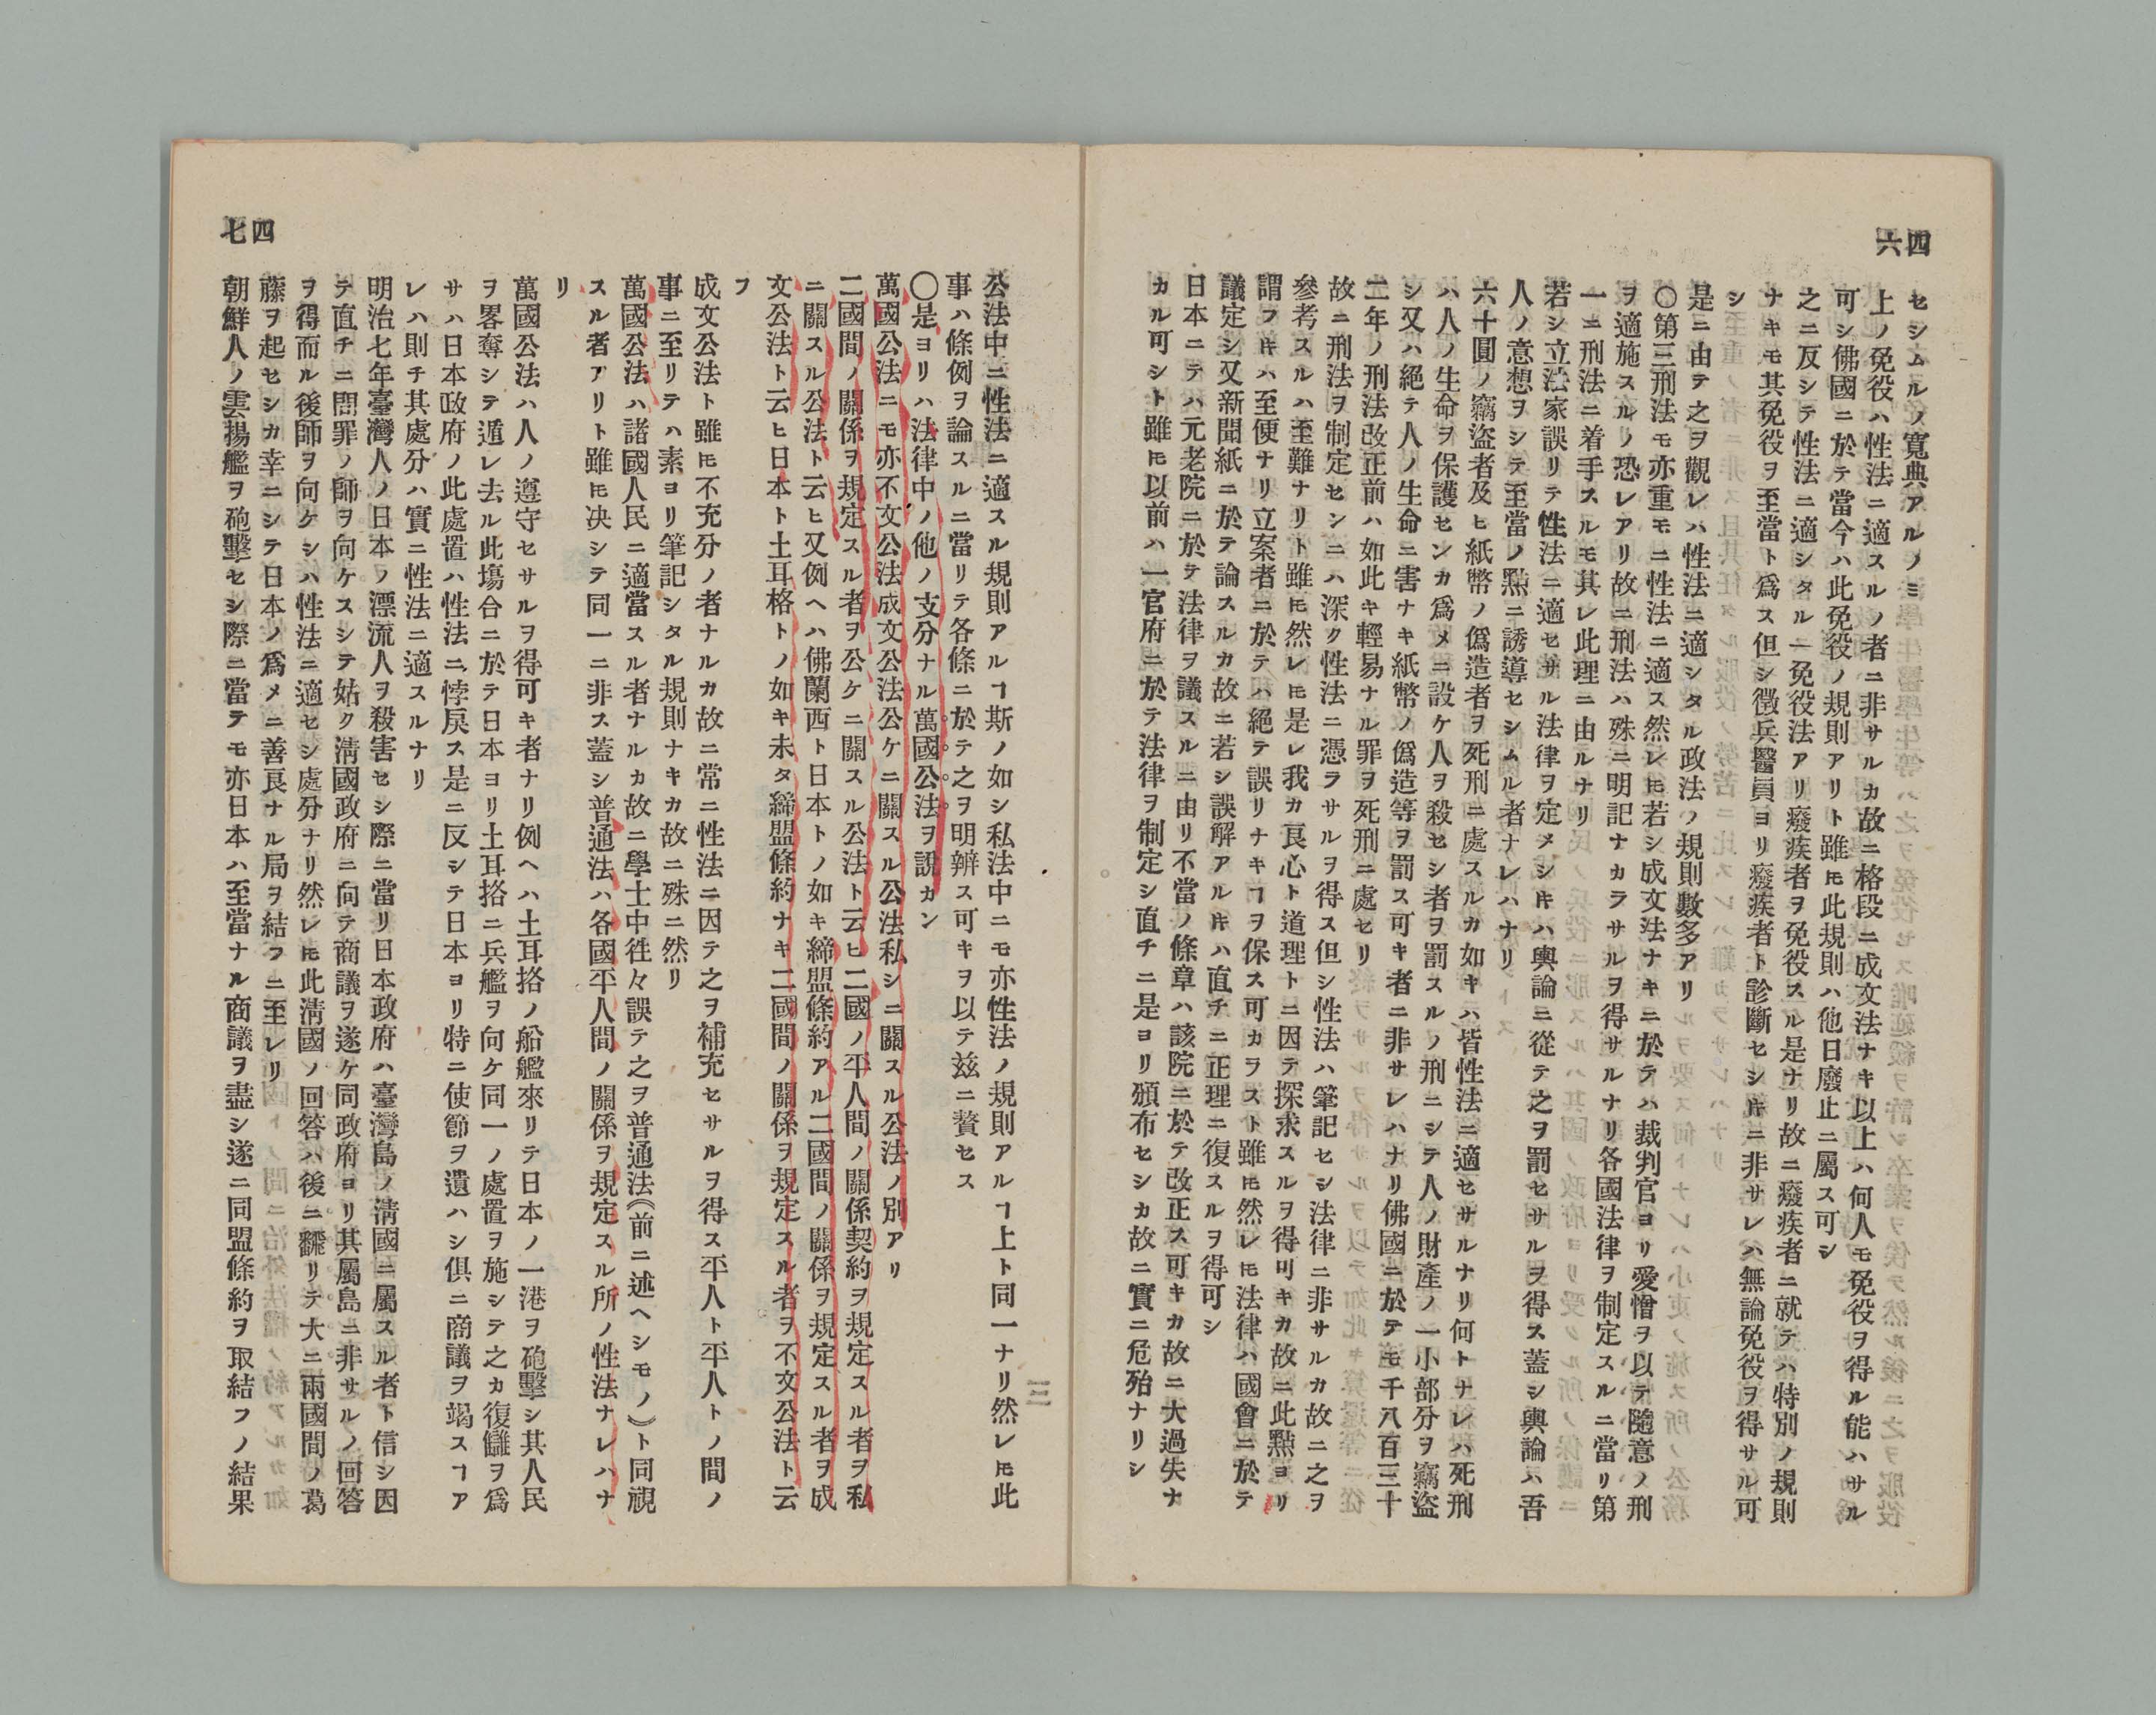 四六
セシムルノ寬典アルノミ
上ノ免役ハ性法ニ適スルノ者ニ非サルカ故ニ格段ニ成文法ナキ以上ハ何人モ免役ヲ得ル能ハサル
可シ佛國ニ於テ當今ハ此免役ノ規則アリト雖𪜈此規則ハ他日廢止ニ屬ス可シ
之ニ反シテ性法ニ適シタル一免役法アリ癈疾者ヲ免役スル是ナリ故ニ癈疾者ニ就テハ特別ノ規則
ナキモ其免役ヲ至當ト爲ス但シ徵兵醫員ヨリ癈疾者ト診斷セシ𬼀ニ非サレハ無論免役ヲ得サル可
シ
是ニ由テ之ヲ觀レハ性法ニ適シタル政法ノ規則數多アリ
〇第三刑法モ亦重モニ性法ニ適ス然レ𪜈若シ成文法ナキニ於テハ裁判官ヨリ愛憎ヲ以テ隨意ノ刑
ヲ適施スルノ恐レアリ故ニ刑法ハ殊ニ明記ナカラサルヲ得サルナリ各國法律ヲ制定スルニ當リ第
一ニ刑法ニ着手スルモ其レ此理ニ由ルナリ
若シ立法家誤リテ性法ニ適セサル法律ヲ定メシ𪜈ハ輿論ニ從テ之ヲ罰セサルヲ得ス蓋シ輿論ハ吾
人ノ意想ヲシテ至當ノ㸃ニ誘導セシムル者ナレハナリ
六十圓ノ竊盜者及ヒ紙幣ノ僞造者ヲ死刑ニ處スルカ如キハ皆性法ニ適セサルナリ何トナレハ死刑
ハ人ノ生命ヲ保護センカ爲メニ設ケ人ヲ殺セシ者ヲ罰スルノ刑ニシテ人ノ財產ノ一小部分ヲ竊盜
シ又ハ絕テ人ノ生命ニ害ナキ紙幣ノ僞造等ヲ罰ス可キ者ニ非サレハナリ佛國ニ於テモ千八百三十
二年ノ刑法改正前ハ如此キ輕易ナル罪ヲ死刑ニ處セリ
故ニ刑法ヲ制定センニハ深ク性法ニ憑ラサルヲ得ス但シ性法ハ筆記セシ法律ニ非サルカ故ニ之ヲ
參考スルハ至難ナリト雖𪜈然レ𪜈是レ我カ良心ト道理トニ因テ探求スルヲ得可キカ故ニ此㸃ヨリ
謂フ𪜈ハ至便ナリ立案者ニ於テハ絕テ誤リナキヿヲ保ス可カラスト雖𪜈然レ𪜈法律ハ國會ニ於テ
議定シ又新聞紙ニ於テ論スルカ故ニ若シ誤解アル𪜈ハ直チニ正理ニ復スルヲ得可シ
日本ニテハ元老院ニ於テ法律ヲ議スルニ由リ不當ノ條章ハ該院ニ於テ改正ス可キカ故ニ大過失ナ
カル可シト雖𪜈以前ハ一官府ニ於テ法律ヲ制定シ直チニ是ヨリ頒布セシカ故ニ實ニ危殆ナリシ
四七
公法中ニ性法ニ適スル規則アルヿ斯ノ如シ私法中ニモ亦性法ノ規則アルヿ上ト同一ナリ然レ𪜈此
事ハ條例ヲ論スルニ當リテ各條ニ於テ之ヲ明辨ス可キヲ以テ玆ニ贅セス
〇是ヨリハ法律中ノ他ノ支分ナル萬國公法ヲ說カン
萬國公法ニモ亦不文公法成文公法公ケニ關スル公法私シニ關スル公法ノ別アリ
二國間ノ關係ヲ規定スル者ヲ公ケニ關スル公法ト云ヒ二國ノ平人間ノ關係契約ヲ規定スル者ヲ私
ニ關スル公法ト云ヒ又例ヘハ佛蘭西ト日本トノ如キ締盟條約アル二國間ノ關係ヲ規定スル者ヲ成
文公法ト云ヒ日本ト土耳格トノ如キ未タ締盟條約ナキ二國間ノ關係ヲ規定スル者ヲ不文公法ト云
フ
成文公法ト雖𪜈不充分ノ者ナルカ故ニ常ニ性法ニ因テ之ヲ補充セサルヲ得ス平人ト平人トノ間ノ
事ニ至リテハ素ヨリ筆記シタル規則ナキカ故ニ殊ニ然リ
萬國公法ハ諸國人民ニ適當スル者ナルカ故ニ學士中徃々誤テ之ヲ普通法(前ニ述ヘシモノ)ト同視
スル者アリト雖𪜈决シテ同一ニ非ス蓋シ普通法ハ各國平人間ノ關係ヲ規定スル所ノ性法ナレハナ
リ
萬國公法ハ人ノ遵守セサルヲ得可キ者ナリ例ヘハ土耳挌ノ船艦來リテ日本ノ一港ヲ砲擊シ其人民
ヲ畧奪シテ遁レ去ル此塲合ニ於テ日本ヨリ土耳挌ニ兵艦ヲ向ケ同一ノ處置ヲ施シテ之カ復讎ヲ爲
サハ日本政府ノ此處置ハ性法ニ悖戾ス是ニ反シテ日本ヨリ特ニ使節ヲ遺ハシ俱ニ商議ヲ竭スヿア
レハ則チ其處分ハ實ニ性法ニ適スルナリ
明治七年臺灣人ノ日本ノ漂流人ヲ殺害セシ際ニ當リ日本政府ハ臺灣島ノ淸國ニ屬スル者ト信シ因
テ直チニ問罪ノ師ヲ向ケスシテ姑ク淸國政府ニ向テ商議ヲ遂ケ同政府ヨリ其屬島ニ非サルノ回答
ヲ得而ル後師ヲ向ケシハ性法ニ適セシ處分ナリ然レ𪜈此淸國ノ回答ハ後ニ飜リテ大ニ兩國間ノ葛
藤ヲ起セシカ幸ニシテ日本ノ爲メニ善良ナル局ヲ結フニ至レリ
朝鮮人ノ雲揚艦ヲ砲擊セシ際ニ當テモ亦日本ハ至當ナル商議ヲ盡シ遂ニ同盟條約ヲ取結フノ結果